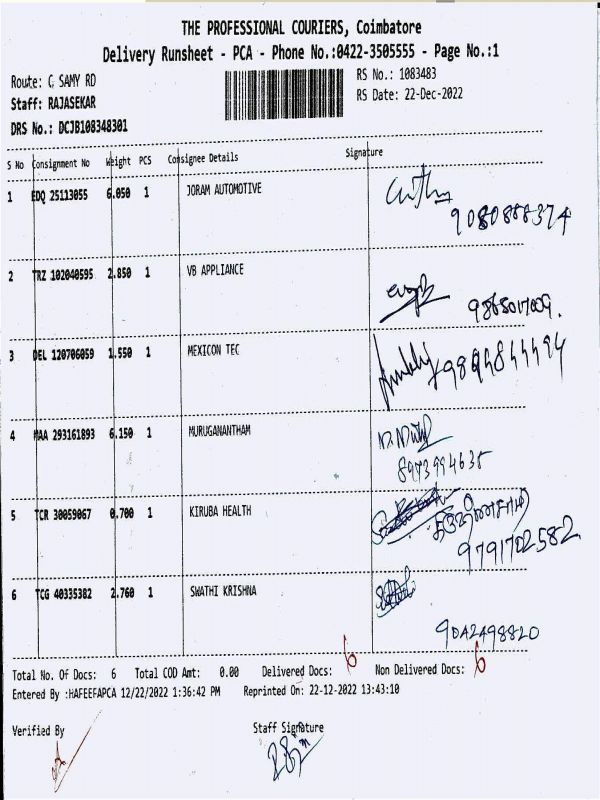 THE PROFESSIONAL COURIERS, Coimbatore
Delivery Runsheet - PCA - Phone No.:0422-3505555 - Page No.:1
Route: C SAMY RD
RS No.: 1083483
Staff: RAJASEKAR
RS Date: 22-Dec-2022
DRS No.: DCJB108348301
S No Consignment No Weight PCS Consignee Details Signature
1 EDQ 25113055 6.050 1 JORAM AUTOMOTIVE
9080888374
2 TRZ 102040595 2.850 1 VB APPLIANCE
9865017009.
3 DEL 120706059 1.550 1 MEXICON TEC
4 MAA 293161893 6.150 1 MURUGANANTHAM
8973994635
5 TCR 30059067 0.700 1 KIRUBA HEALTH
9791702582
6 TCG 40335382 2.760 1 SWATHI KRISHNA
9042498820
Total No. Of Docs: 6 Total COD Amt: 0.00 Delivered Docs: 6 Non Delivered Docs: 6
Entered By :HAFEEFAPCA 12/22/2022 1:36:42 PM Reprinted On: 22-12-2022 13:43:10
Verified By Staff Signature